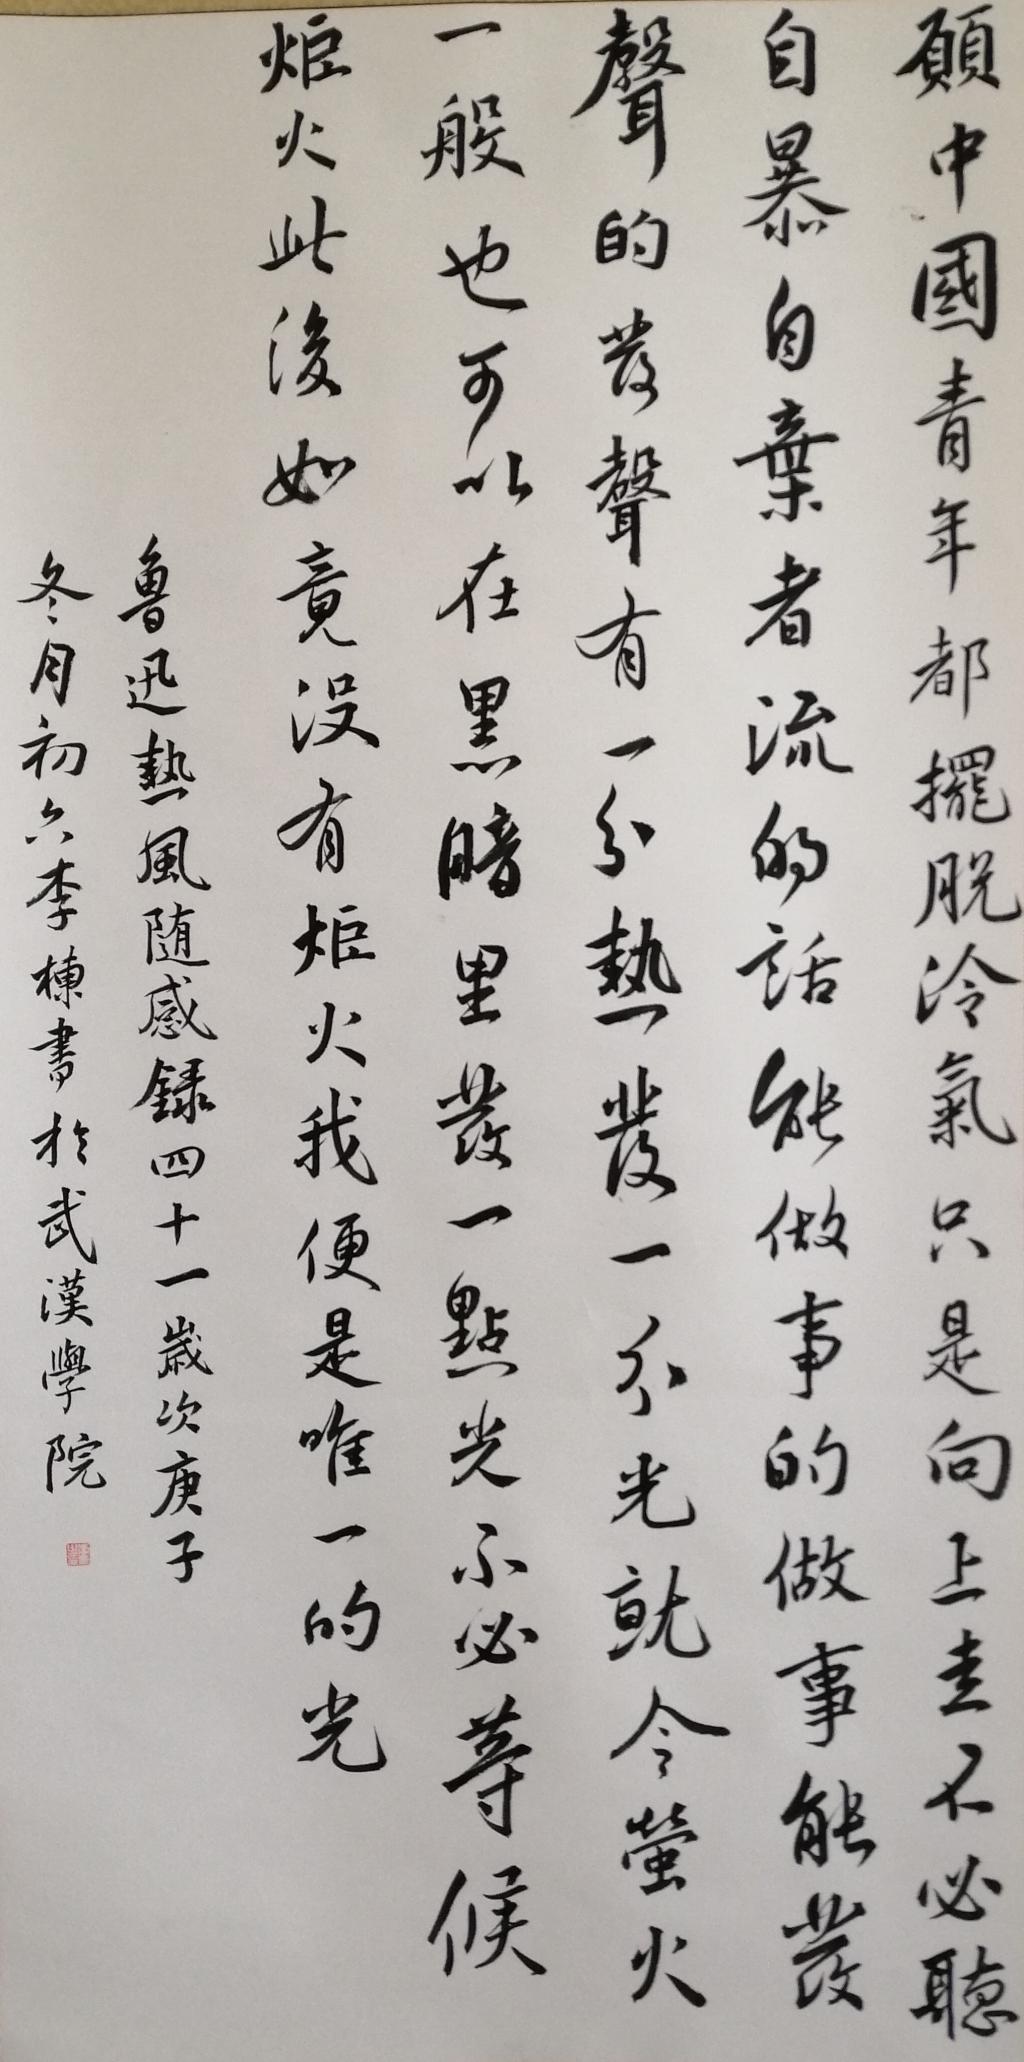 願中國青年都擺脫冷氣只是向上走不必聽
自暴自棄者流的話能做事的做事能發
聲的發聲有一分熱發一分光就令螢火
一般也可以在黑暗里發一點光不必等候
炬火此後如竟沒有炬火我便是唯一的光
魯迅熱風随感録四十一歲次庚子
冬月初六李棟書於武漢學院